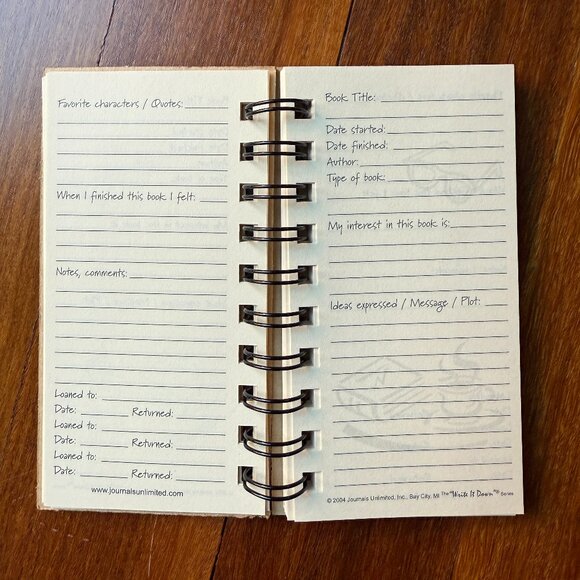 Favorite characters / Quotes:
When I finished this book I felt:
Notes, comments:
Loaned to:
Date: Returned:
Loaned to:
Date: Returned:
Loaned to:
Date: Returned:
www.journalsunlimited.com
Book Title:
Date started:
Date finished:
Author:
Type of book:
My interest in this book is:
Ideas expressed / Message / Plot:
© 2004 Journals Unlimited, Inc., Bay City, MI The "Write It Down"® Series